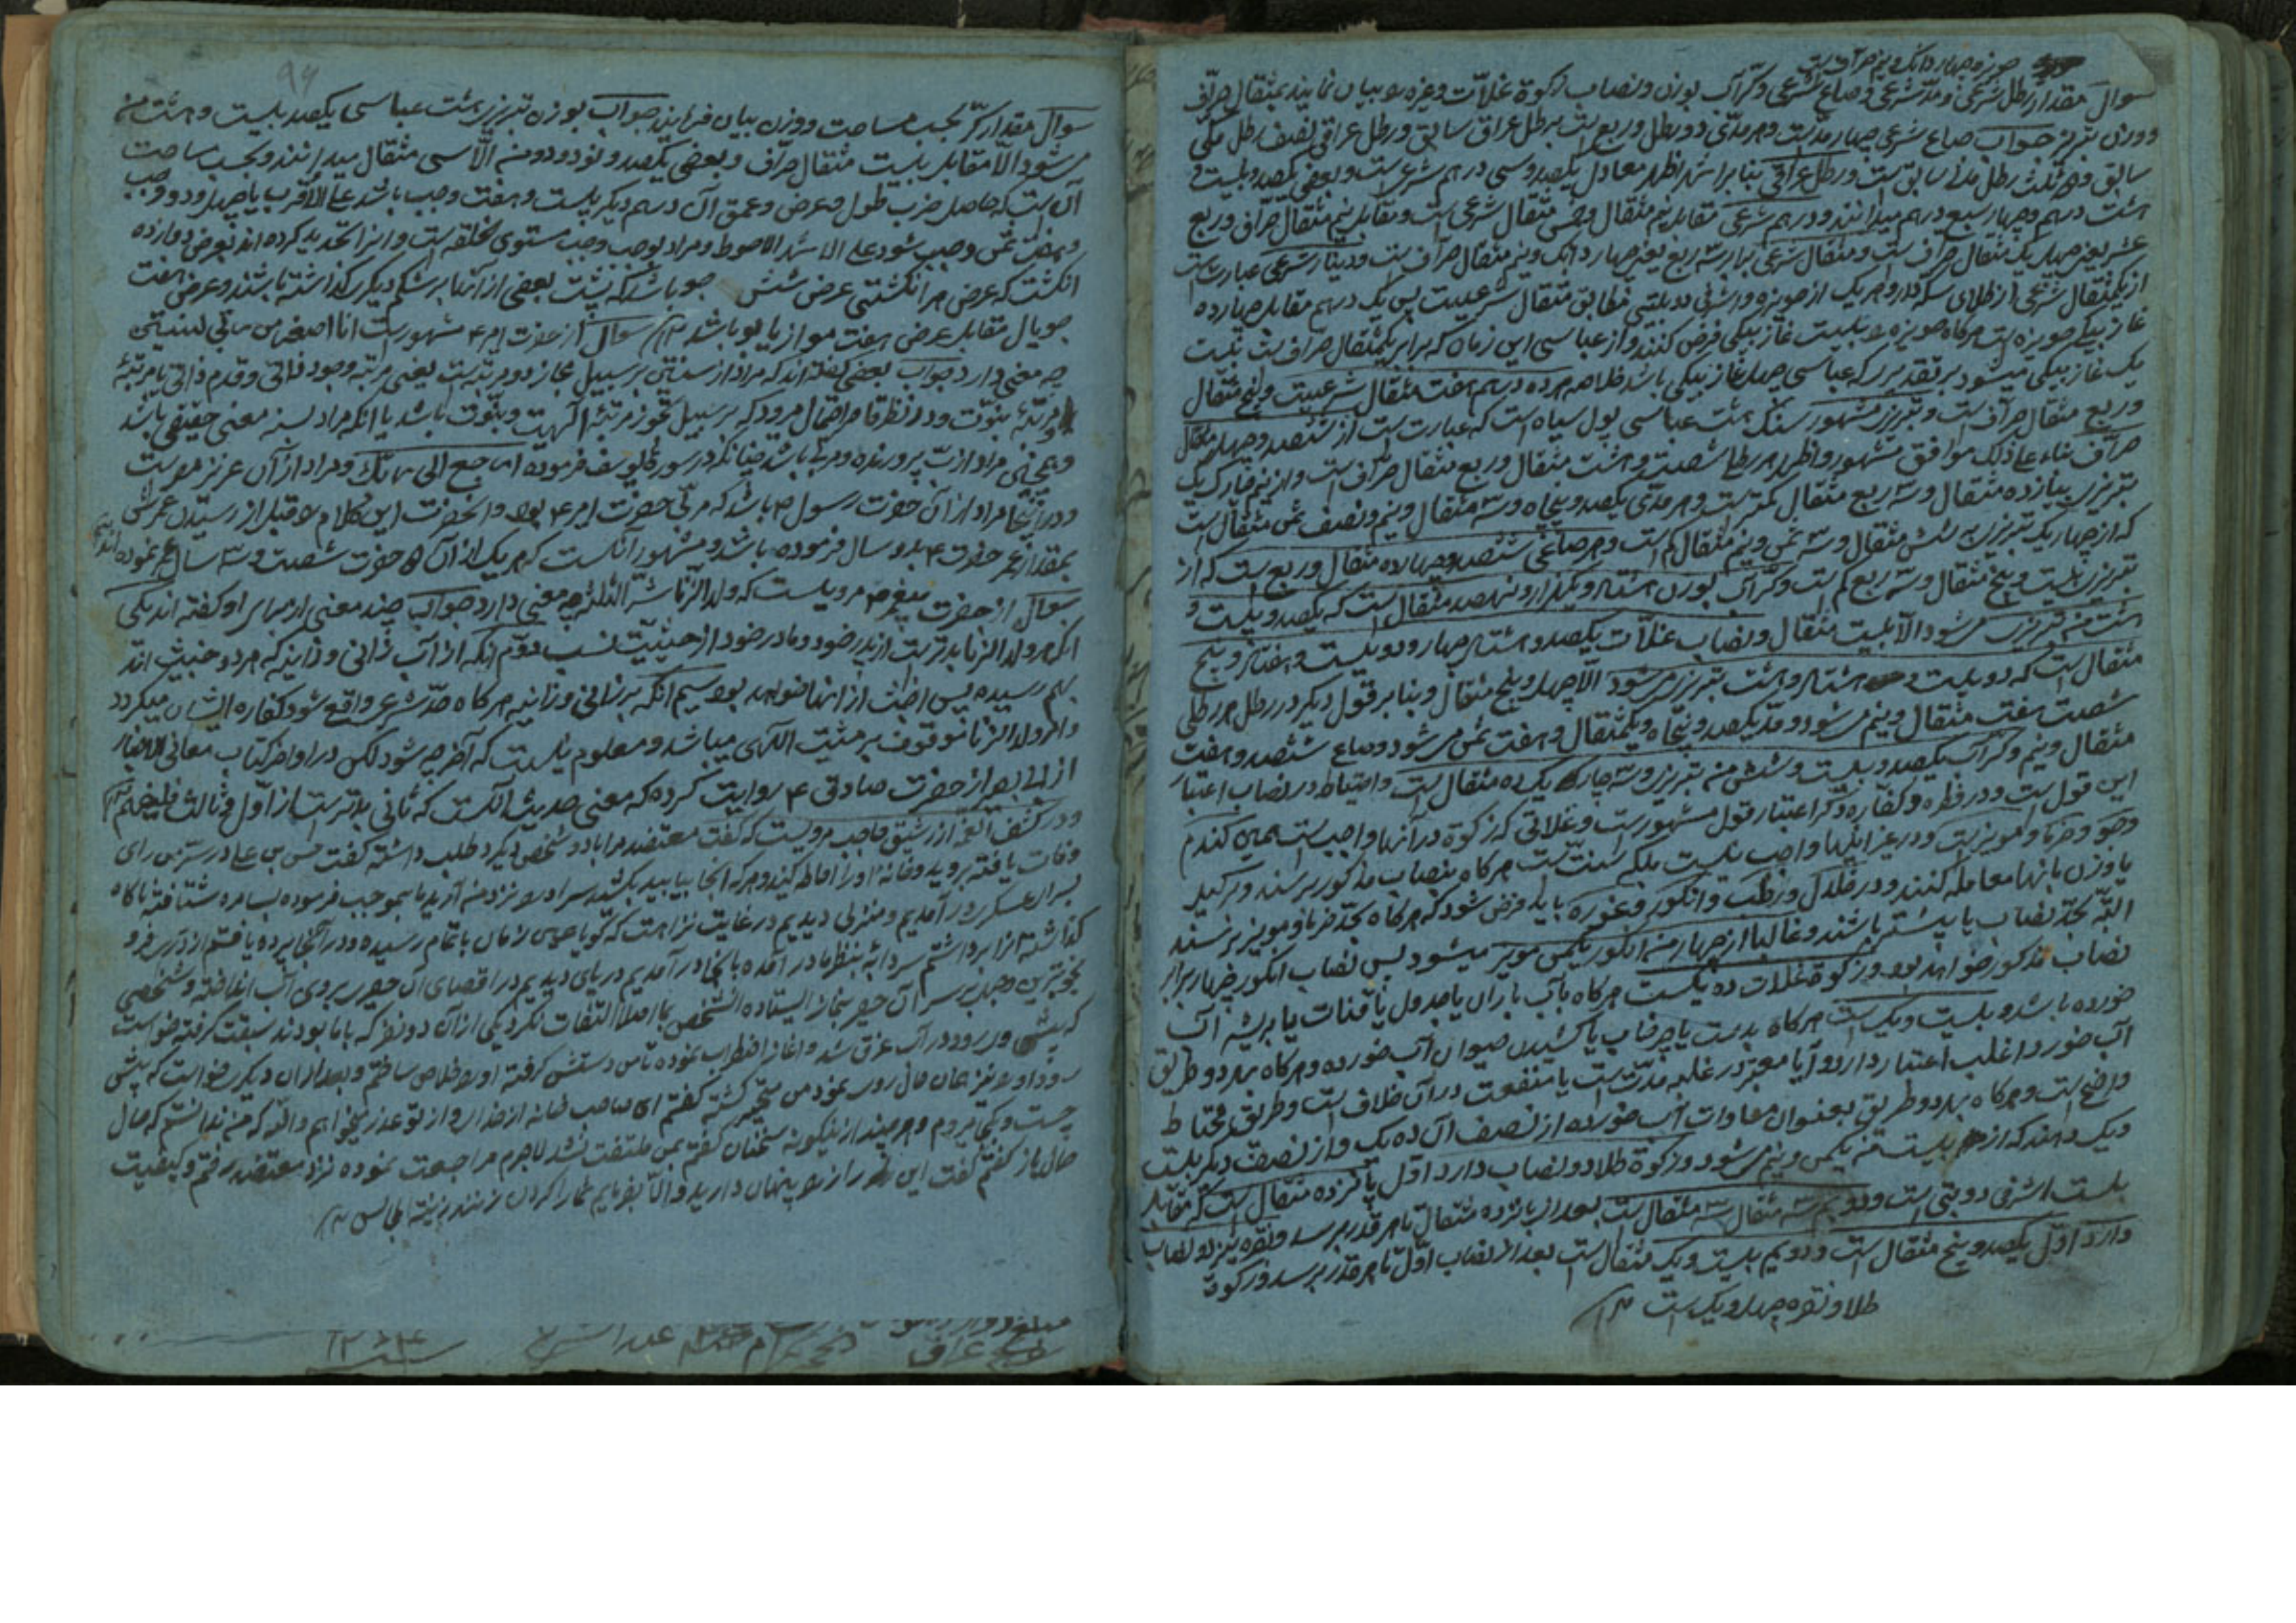 سوال مقدار رطل شرعی و مدّ شرعی و صاع شرعی و کرّ آب بوزن و نصاب زکوة غلاّت و غیره بیان نمایند بمثقال صرّاف
و وزن تبریز جواب صاع شرعی چهار مدّ است و هر مدّی دو رطل و ربع است برطل عراق سابق و رطل عراقی نصف رطل مکی
سابق و دو ثلث رطل مدنی سابق است و رطل عراقی بنا بر اشهر اظهر معادل یکصد و سی درهم شرعی است و بعضی یکصد و بیست و
هشت درهم و چهار سبع درهم میدانند و درهم شرعی مقابل نیم مثقال و خمس مثقال شرعی است و مقابل نیم مثقال صرّاف و ربع
عشر یعنی چهل یک مثقال صراف است و مثقال شرعی برابر سه ربع یعنی چهار دانک و نیم مثقال صراف است و دینار شرعی عبارت است
از یکمثقال شرعی از طلای سکه دار و هر یک از و اشرفی دوبتی مطابق مثقال شرعیست پس یک درهم مقابل چهارده
غاز بیکی میشود بر تقدیر که عباسی چهل غاز بیکی باشد خلاصه هر ده درهم هفت مثقال شرعیست و پنج مثقال
و ربع مثقال صراف است و تبریز مشهور سنک هشت عباسی پول سیاه است که عبارتست از ششصد و چهل مثقال
صراف بناء علی ذلک موافق مشهور و اظهر هر رطل شصت و هشت مثقال و ربع مثقال صراف است
تبریز پانزده مثقال و سه ربع مثقال کمتر است و هر مدّی یکصد و پنجاه و سه مثقال و نیم و نصف ثمن مثقال است
که از چهار یک تبریز شش مثقال و سه ثمن و نیم مثقال کم است و هر صاعی ششصد و چهارده مثقال و ربع است که از
تبریز بیست و پنج مثقال و سه ربع کم است و کرّ آب بوزن هشتاد و یکهزار و نهصد مثقال است که یکصد و بیست و
هشت من تبریز میشود الاّ بیست مثقال و نصاب غلاّت یکصد و هشتاد چهار و دویست و هفتاد و پنج
مثقال است که دویست و هشتاد و هشت تبریز میشود الاّ چهل و پنج مثقال و بنا بر قول دیگر در رطل هر رطلی
شصت هفت مثقال و نیم میشود و مدّ یکصد و پنجاه و یکمثقال و هفت ثمن میشود و صاع ششصد و هفت
مثقال و نیم و کرّ آب یکصد و بیست و شش من تبریز و سه چارک یک ده مثقال است و احتیاط در نصاب اعتبار
این قول است و در فطره و کفاره و کرّ اعتبار قول مشهور است و غلاتی که زکوة در آنها واجب است همین گندم
و جو و خرما و مویز است و در غیر اینها واجب نیست بلکه سنت است هر کاه بنصاب مذکور برسند و بکیل
یا وزن بانها معامله کنند و در خلال و رطب و انکور و غوره باید فرض شود که هر کاه بحدّ خرما و مویز برسند
البته بحدّ نصاب یا بیشتر باشند و غالبا از چهار من انکور یکمن مویز میشود پس نصاب انکور چهار برابر
نصاب مذکور خواهد بود و زکوة غلات ده یکست هر کاه بآب باران یا جدول یا قنات یا بریشه آب
خورده باشد و بیست و یک است هر کاه بدست یا چرخاب یا کشیدن حیوان آب خورده و هر کاه بهر دو طریق
آب خورد اغلب اعتبار دارد و آیا معتبر در غلبه مدّت است یا منفعت در آن خلاف است و طریق محتاط
واضح است و هر کاه بهر دو طریق بعنوان مساوات آب خورده از نصف آن ده یک و از نصف دیکر بیست
و یک دهند که از بیست من یکمن و نیم میشود و زکوة طلا دو نصاب دارد اول پانزده مثقال است که مقابل
بیست اشرفی دوبتی است و دویم سه مثقال سه مثقال است بعد از پانزده مثقال تا هر قدر برسد و نقره نیز دو نصاب
دارد اوّل یکصد و پنج مثقال است و دویم بیست و یک مثقال است بعد از نصاب اوّل تا هر قدر برسد و زکوة
طلا و نقره چهل و یک است
سوال مقدار کرّ بحسب مساحت و وزن بیان فرمایند جواب بوزن تبریز هشت عباسی یکصد بیست و هشت من
میشود الاّ مقابل بیست مثقال صرّاف و بعضی یکصد و نود و دو من الاّ سی مثقال میدانند و بحسب مساحت
آن است که حاصل ضرب طول و عرض و عمق آن در هم دیگر بیست و هفت وجب باشد علی الاقرب یا چهل و دو وجب
و هفت ثمن وجب شود علی الاشهر الاحوط و مراد بوجب وجب مستوی الخلقه است و انرا تحدید کرده اند بعرض دوازده
انکشت که عرض هر انکشتی عرض شش جو باشد که پشت بعضی از انها بر شکم دیگر گذاشته باشند و عرض هفت
جو یال مقابل عرض هفت مو از یابو باشد سوال از حضرت امیر ع مشهور است انا اصغر من ربی بسنتین
چه معنی دارد جواب بعضی گفته اند که مراد از سنتین بر سبیل مجاز دو مرتبه است یعنی مرتبه وجود ذاتی و قدم ذاتی یا مرتبهٔ
و مرتبهٔ نبوّت و در نظر قاصر احتمال میرود که بر سبیل تجوز مرتبهٔ الهیت و نبوّت باشد یا انکه مراد سنه معنی حقیقی باشد
و همچنین مراد از ربّ پرورنده و مربی باشد چنانکه در سوره یوسف فرموده ارجع الی ربک و مراد از آن عزیز مصر است
و در اینجا مراد از آن حضرت رسول ص باشد که مربّی حضرت امیر ع بود و انحضرت این کلام قبل از رسیدن عمرش
بمقدار عمر حضرت بدو سال فرموده باشد و مشهور آنست که هر یک از آن دو حضرت شصت و سه سال عمر نموده اند
سوال از حضرت پیغمبر ص مرویست که ولد الزّنا شرّ الثلثه چه معنی دارد جواب چند معنی از برای او گفته اند یکی
انکه ولد الزنا بدتر است از پدر خود و مادر خود از حیثیّت نسب دوّم انکه از آب زانی و زانیه که هر دو خبیث اند
بهم رسیده پس اخبث از انها خواهد بود سیم انکه بر زانی و زانیه هر کاه حدّ شرعی واقع شود کفاره ایشان میکردد
و امر ولد الزنا موقوف بر مشیّت الهی میباشد و معلوم نیست که آخر چه شود لکن در اواخر کتاب معانی الاخبار
از ابی بصیر از حضرت صادق ع روایت کرده که معنی حدیث آنست که ثانی بدتر است از اوّل و ثالث
و در کشف الغمه از رشیق حاجب مرویست که گفت معتضد مرا با دو شخص دیگر طلب داشته گفت حسن بن علی در سرّ من رای
وفات یافته بروید و خانه او را احاطه کنید و هر که انجا بیابید بکشید سر او را نزد من آرید ما بموجب فرموده بسامره شتافته ناکاه
بسرای عسکری در آمدیم و منزلی دیدیم در غایت نزاهت که گویا همین زمان باتمام رسیده و در آنجا پرده یافتیم از
گذاشته انرا برداشتم سردابه بنظر ما در آمده بانجا در آمدیم دریای دیدیم در اقصای آن حصیر بر روی آب انداخته و شخصی
بخوبترین وجهی بر سر آن حصیر بنماز ایستاده آنشخص بما اصلا التفات نکرد یکی از آن دو نفر که با ما بودند سبقت گرفته خواست
که پیش او رود در آب غرق شد و آغاز اضطراب نموده تا من دستش گرفته او را خلاص ساختم و بعد از ان دیکری خواست که پیش
رود او را نیز همان حال روی نمود من متحیر گشته گفتم ای صاحب خانه از خدا و از تو عذر میخواهم والله که من ندانستم که حال
چیست و بکجا میروم و هر چند از نیکونه سخنان گفتم بمن ملتفت نشد لاجرم مراجعت نموده نزد معتضد رفتم و کیفیت
حال باز گفتم گفت این سر را پنهان دارید و الاّ بفرمایم شما را گردن زنند زینة المجالس